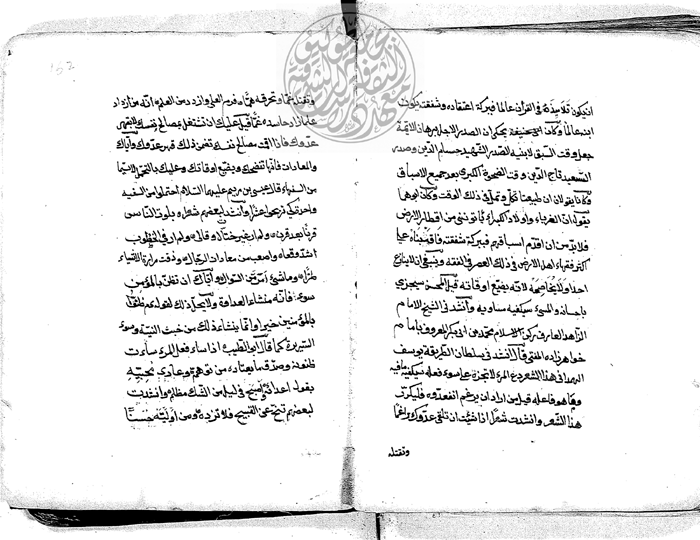 ان يكون تلاميذه في القرآن عالما فببركة اعتقاده وشفقته يكون
ابنه عالما وكان ابو حنيفة يحكي ان الصدر الاجل برهان الائمة
جعل وقت السبق لابنيه الصدر الشهيد حسام الدين وصدر
السعيد تاج الدين وقت الضحوة الكبرى بعد جميع الاسباق
وكانا يقولان ان طبيعتنا تكل وتمل في ذلك الوقت وكان ابوهما
يقول ان الغرباء واولاد الكبراء يأتونني من اقطار الارض
فلا بد من ان اقدم اسباقهم فببركة شفقته فاق ابناه على
اكثر فقهاء اهل الارض في ذلك العصر في الفقه وينبغي ان لا ينازع
احدا ولا يخاصمه لانه يضيع اوقاته قيل المحسن سيجزى
باحسانه والمسيء سيكفيه مساويه وانشدني الشيخ الامام
الزاهد العارف ركن الاسلام محمد بن ابي بكر المعروف بامام
خواهر زاده المفتي قال انشدني سلطان الطريقة يوسف
الهمداني هذا الشعر دع المرء لا تجزه على سوء فعله سيكفيه ما فيه
وما هو فاعله قيل من اراد ان يرغم انف عدوه فليكرر
هذا الشعر وانشدت شعرا اذا شئت ان تلقى عدوك راغما
وتقتله
وتقتله غما وتحرقه هما فرم العلى وازدد من العلم انه من ازداد
علما زاد حاسده غما قيل عليك ان تشتغل بمصالح نفسك لا بقهر
عدوك فاذا اقمت مصالح نفسك تضمن ذلك قهر عدوك واياك
والمعادات فانها تفضحك وتضيع اوقاتك وعليك بالتحمل لا سيما
من السفهاء قال عيسى بن مريم عليهما السلام احتملوا من السفيه
واحدة كي تربحوا عشرا وانشد لبعضهم شعرا وبلوت الناس
قرنا بعد قرن ولم ار غير ختال وقالي ولم ار في الخطوب
اشد وقعا واصعب من معادات الرجال وذقت مرارة الاشياء
طرا وما شيء امر من السؤال واياك ان تظن بالمؤمن
سوء فانه منشاء العداوة ولا يحل ذلك لقوله عم ظنوا
بالمؤمنين خيرا وانما ينشاء ذلك من خبث النية وسوء
السريرة كما قال ابو الطيب اذا ساء فعل المرء ساءت
ظنونه وصدق ما يعتاده من توهم وعادى محبيه
بقول اعدائه واصبح في ليل من الشك مظلم وانشدت
لبعضهم تنح عن القبيح فلا ترده ومن اوليته حسنا